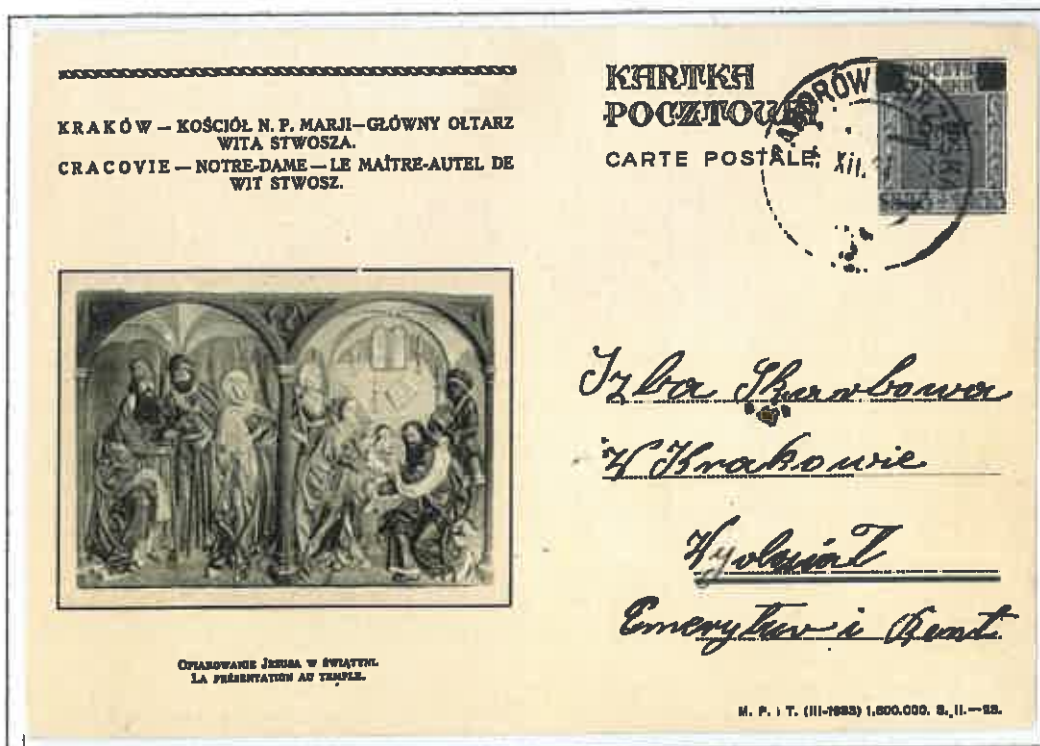 KRAKÓW — KOŚCIÓŁ N. P. MARJI—GŁÓWNY OŁTARZ
WITA STWOSZA.
CRACOVIE — NOTRE-DAME — LE MAÎTRE-AUTEL DE
WIT STWOSZ.
OFIAROWANIE JEZUSA W ŚWIĄTYNI.
LA PRÉSENTATION AU TEMPLE.
KARTKA
POCZTOWA
CARTE POSTALE
XII.
Izba Skarbowa
W Krakowie
Wydział
Emerytur i Rent
M. P. i T. (III-1933) 1,600.000. S. II.—23.